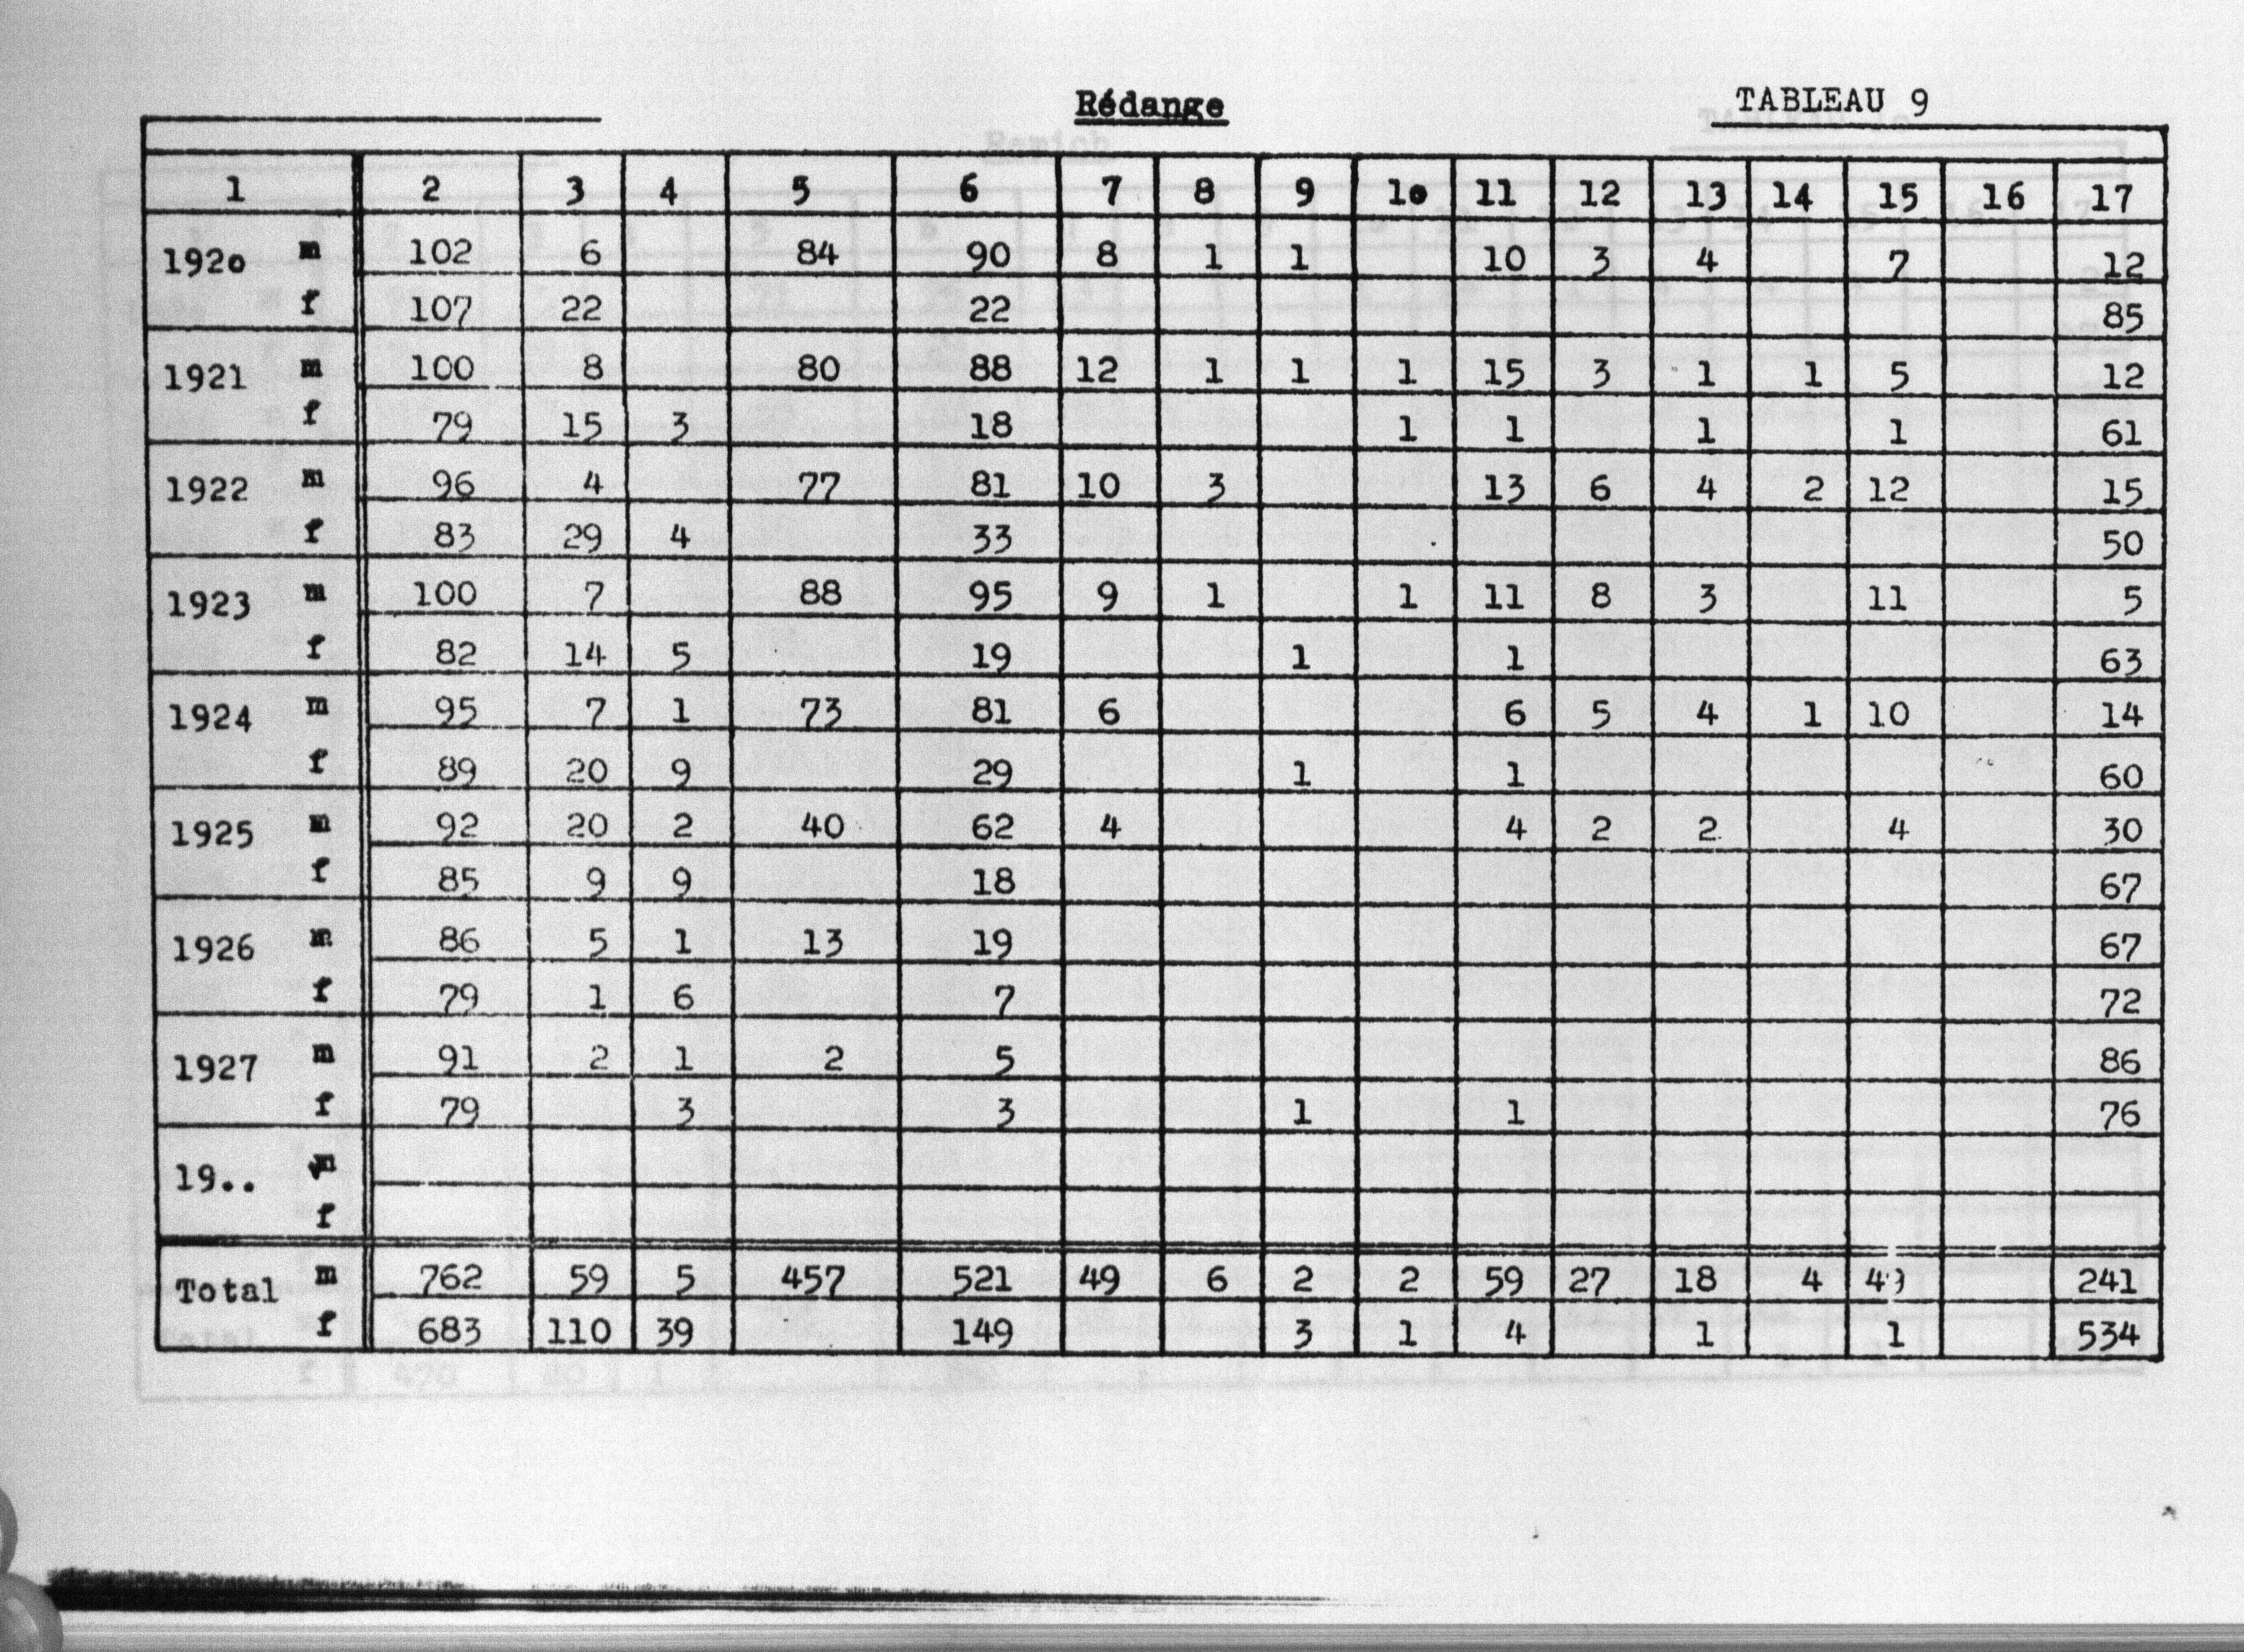 Rédange
TABLEAU 9
1 2 3 4 5 6 7 8 9 1o 11 12 13 14 15 16 17
192o m 102 6 84 90 8 1 1 10 3 4 7 12
f 107 22 22 85
1921 m 100 8 80 88 12 1 1 1 15 3 1 1 5 12
f 79 15 3 18 1 1 1 1 61
1922 m 96 4 77 81 10 3 13 6 4 2 12 15
f 83 29 4 33 50
1923 m 100 7 88 95 9 1 1 11 8 3 11 5
f 82 14 5 19 1 1 63
1924 m 95 7 1 73 81 6 6 5 4 1 10 14
f 89 20 9 29 1 1 60
1925 m 92 20 2 40 62 4 4 2 2 4 30
f 85 9 9 18 67
1926 m 86 5 1 13 19 67
f 79 1 6 7 72
1927 m 91 2 1 2 5 86
f 79 3 3 1 1 76
19.. m
f
Total m 762 59 5 457 521 49 6 2 2 59 27 18 4 49 241
f 683 110 39 149 3 1 4 1 1 534